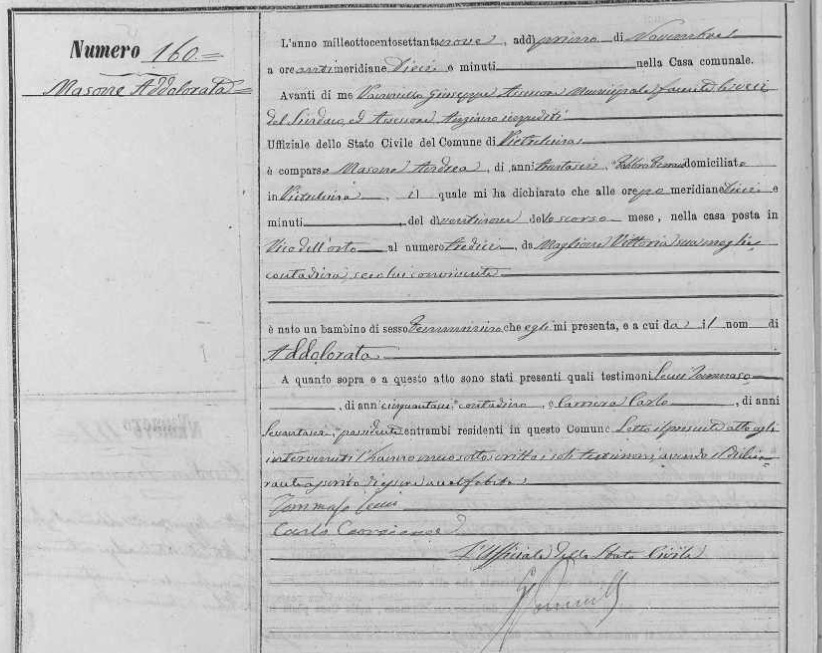 Numero 160
Masone Addolorata
L'anno milleottocentosettantanove, addì primo di Novembre
a ore antimeridiane Dieci e minuti nella Casa comunale.
Avanti di me Giuseppe Assessore Municipale facente le veci
del Sindaco, ed Assessore Anziano impediti
Uffiziale dello Stato Civile del Comune di Pietrelcina
è comparso Masone Andrea, di anni domiciliato
in Pietrelcina, il quale mi ha dichiarato che alle ore pomeridiane Dieci e
minuti del dì ventinove dello scorso mese, nella casa posta in
Vico dell'orto al numero tredici, da Vittoria sua moglie
contadina, seco lui convivente
è nato un bambino di sesso femminino che egli mi presenta, e a cui dà il nom di
Addolorata
A quanto sopra e a questo atto sono stati presenti quali testimoni Tommaso
, di anni contadino, e Carlo, di anni
entrambi residenti in questo Comune. Letto il presente atto agli
intervenuti l'hanno meco sottoscritto i soli testimoni, avendo il dichia-
rante asserito essere analfabeta
Tommaso
Carlo
L'Uffiziale dello Stato Civile